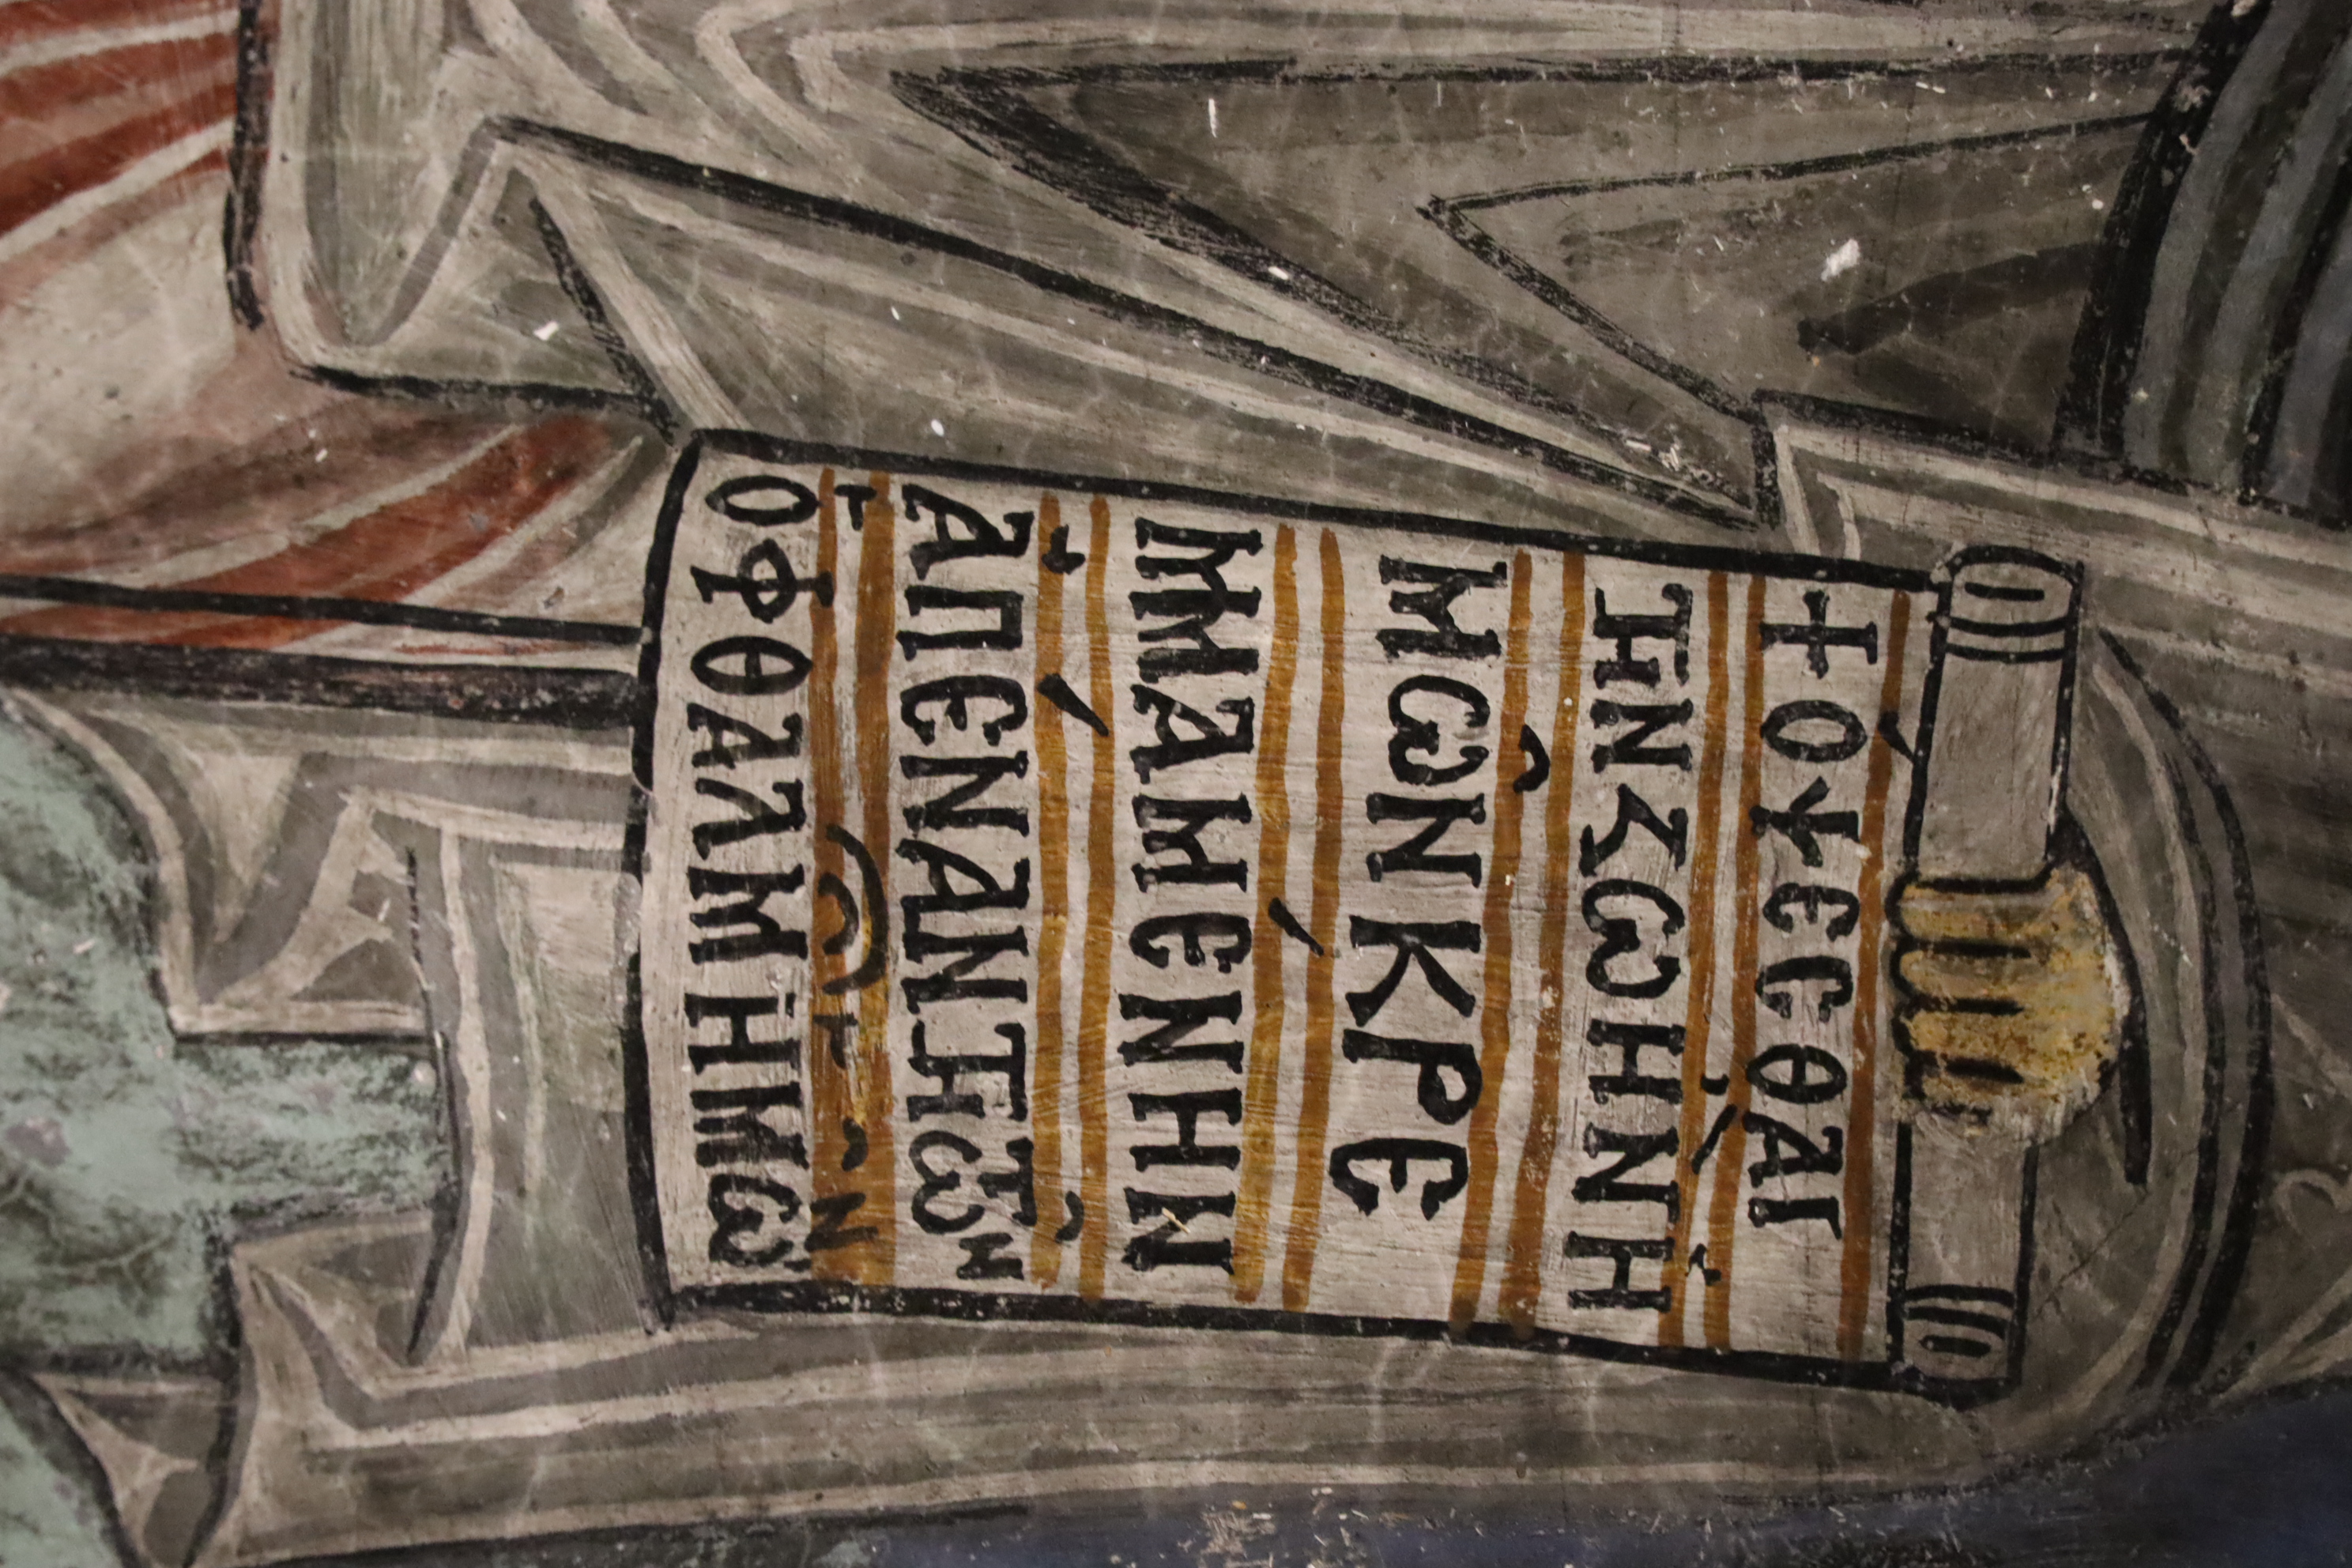 + ὌΨΕСΘΑΙ
ΤΗΝ ΖΩΉΝ Ἡ
ΜΩ͂Ν ΚΡΕ
ΜΜΑΜΈΝΗΝ
ἈΠΈΝΑΝΤΗ ΤΩ͂Ν
ὈΦΘΑΛΜ ἩΜΩ͂Ν